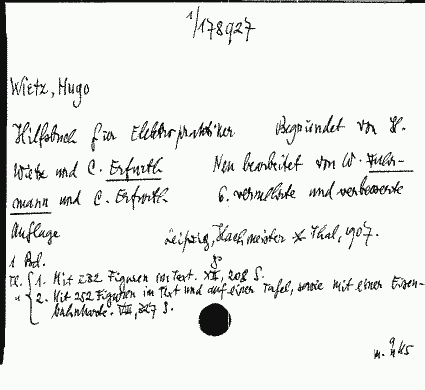 1/178927
Wietz, Hugo
Hilfsbuch für Elektropraktiker Begründet von H.
Wietz und C. Erfurth Neu bearbeitet von W. Fuhr-
mann und C. Erfurth 6. vermehrte und verbesserte
Auflage Leipzig, Hachmeister & Thal, 1907.
1 Bd. 8°
Tl. 1. Mit 282 Figuren im Text. XII, 208 S.
" 2. Mit 252 Figuren im Text und auf einer Tafel, sowie mit einer Eisen-
bahnkarte. VIII, S.